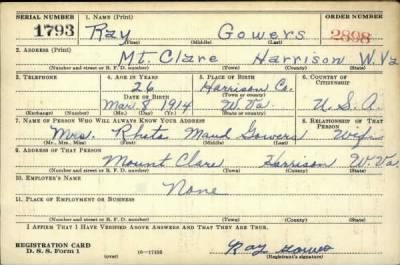 SERIAL NUMBER 1. NAME (Print) ORDER NUMBER
1793 Ray Gowers 2898
(First) (Middle) (Last)
2. ADDRESS (Print)
Mt. Clare Harrison W. Va
(Number and street or R. F. D. number) (Town) (County) (State)
3. TELEPHONE 4. AGE IN YEARS 5. PLACE OF BIRTH 6. COUNTRY OF CITIZENSHIP
26 Harrison Co.
DATE OF BIRTH (Town or county)
Mar. 8 1914 W. Va. U. S. A.
(Exchange) (Number) (Mo.) (Day) (Yr.) (State or country)
7. NAME OF PERSON WHO WILL ALWAYS KNOW YOUR ADDRESS 8. RELATIONSHIP OF THAT PERSON
Mrs. Maud Gowers Wife
(Mr., Mrs., Miss) (First) (Middle) (Last)
9. ADDRESS OF THAT PERSON
Mount Clare Harrison W. Va.
(Number and street or R. F. D. number) (Town) (County) (State)
10. EMPLOYER'S NAME
None
11. PLACE OF EMPLOYMENT OR BUSINESS
(Number and street or R. F. D. number) (Town) (County) (State)
I AFFIRM THAT I HAVE VERIFIED ABOVE ANSWERS AND THAT THEY ARE TRUE.
REGISTRATION CARD
D. S. S. Form 1 16—17105 Ray Gowers
(over) (Registrant's signature)